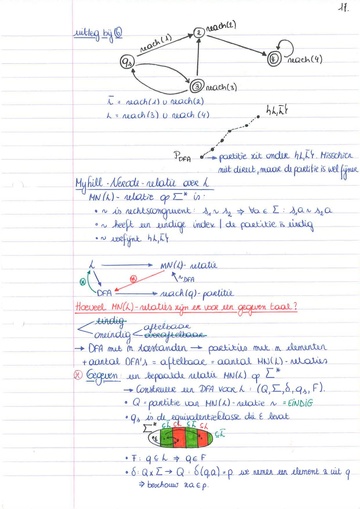 11.
uitleg bij ⊗
reach(1)
2
reach(2)
q₀
4
reach(4)
3
reach(3)
L̄ = reach(1) ∪ reach(2)
L = reach(3) ∪ reach(4)
{L, L̄}
P_DFA
→ partitie zit onder {L, L̄}. Misschien
niet direct, maar de partitie is wel fijner
Myhill-Nerode-relatie over L
MN(L)-relatie op Σ* is:
• ~ is rechtscongruent: s₁ ~ s₂ ⇒ ∀a ∈ Σ: s₁a ~ s₂a
• ~ heeft een eindige index / de partitie is eindig
• ~ verfijnt {L, L̄}
L → MN(L)-relatie
~DFA
DFA → reach(q)-partitie
Hoeveel MN(L)-relaties zijn er voor een gegeven taal?
eindig
oneindig
aftelbaar
overaftelbaar
→ DFA met n toestanden → partities met n elementen
→ aantal DFA's = aftelbaar = aantal MN(L)-relaties
⊗ Gegeven: een bepaalde relatie MN(L) op Σ*
→ Construeer een DFA voor L: (Q, Σ, δ, q₀, F).
• Q = partitie van MN(L)-relatie ~ = EINDIG
• q₀ is de equivalentieklasse die ε bevat
Σ*
• F: q ⊆ L ⇒ q ∈ F
• δ: Q x Σ → Q: δ(q,a) = p we nemen een element x uit q
⇒ beschouw xa ∈ p.